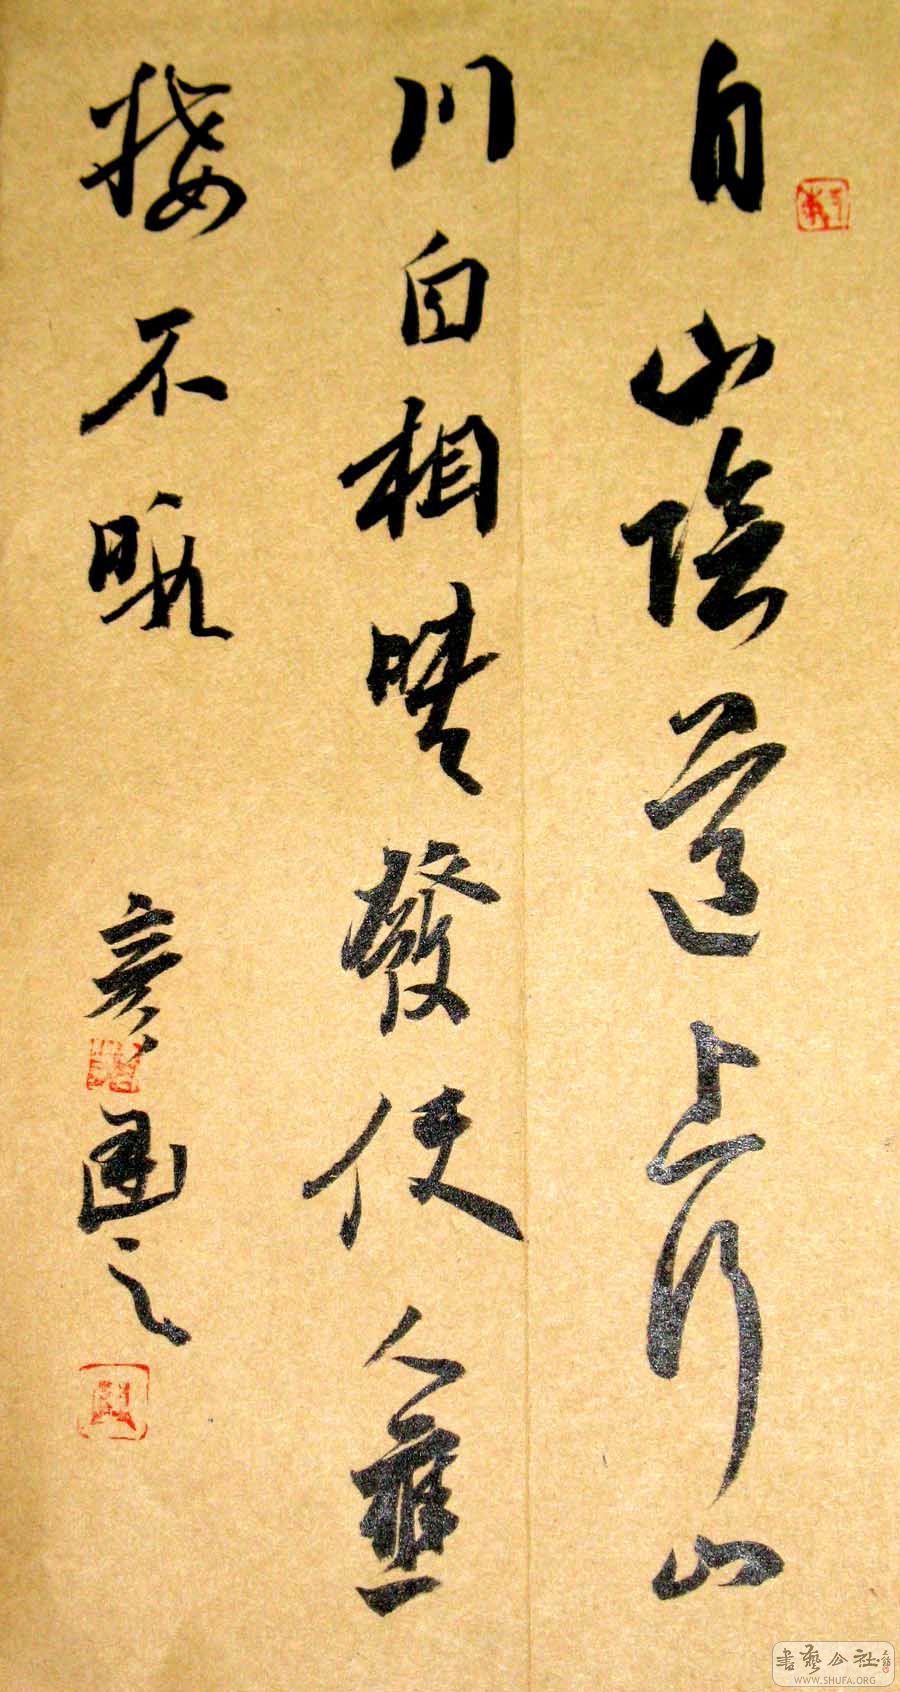 自山陰道上行山
川自相暎發使人應
接不暇
書藝公社
WWW.SHUFA.ORG